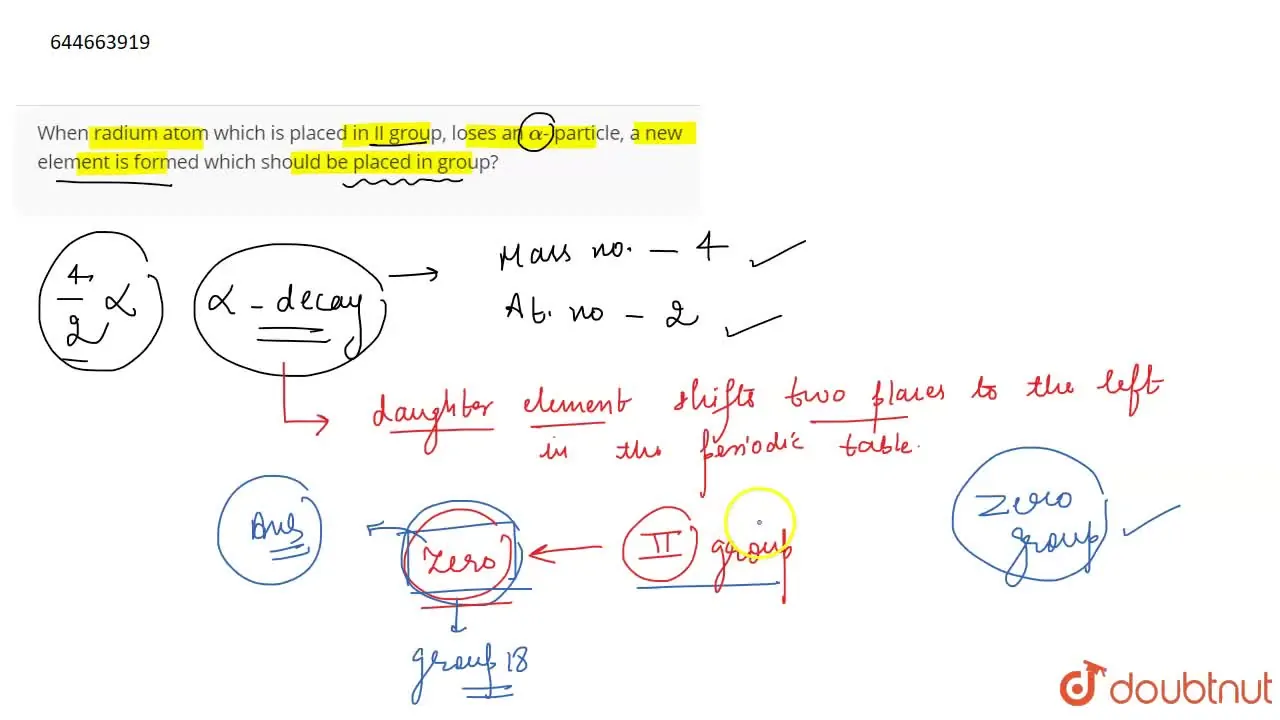 644663919
When radium atom which is placed in II group, loses an α- particle, a new
element is formed which should be placed in group?
4
2 α
α - decay
Mass no. - 4
At. no - 2
daughter element shifts two places to the left
in the periodic table.
Ans
Zero
II group
Zero
group
group 18
doubtnut